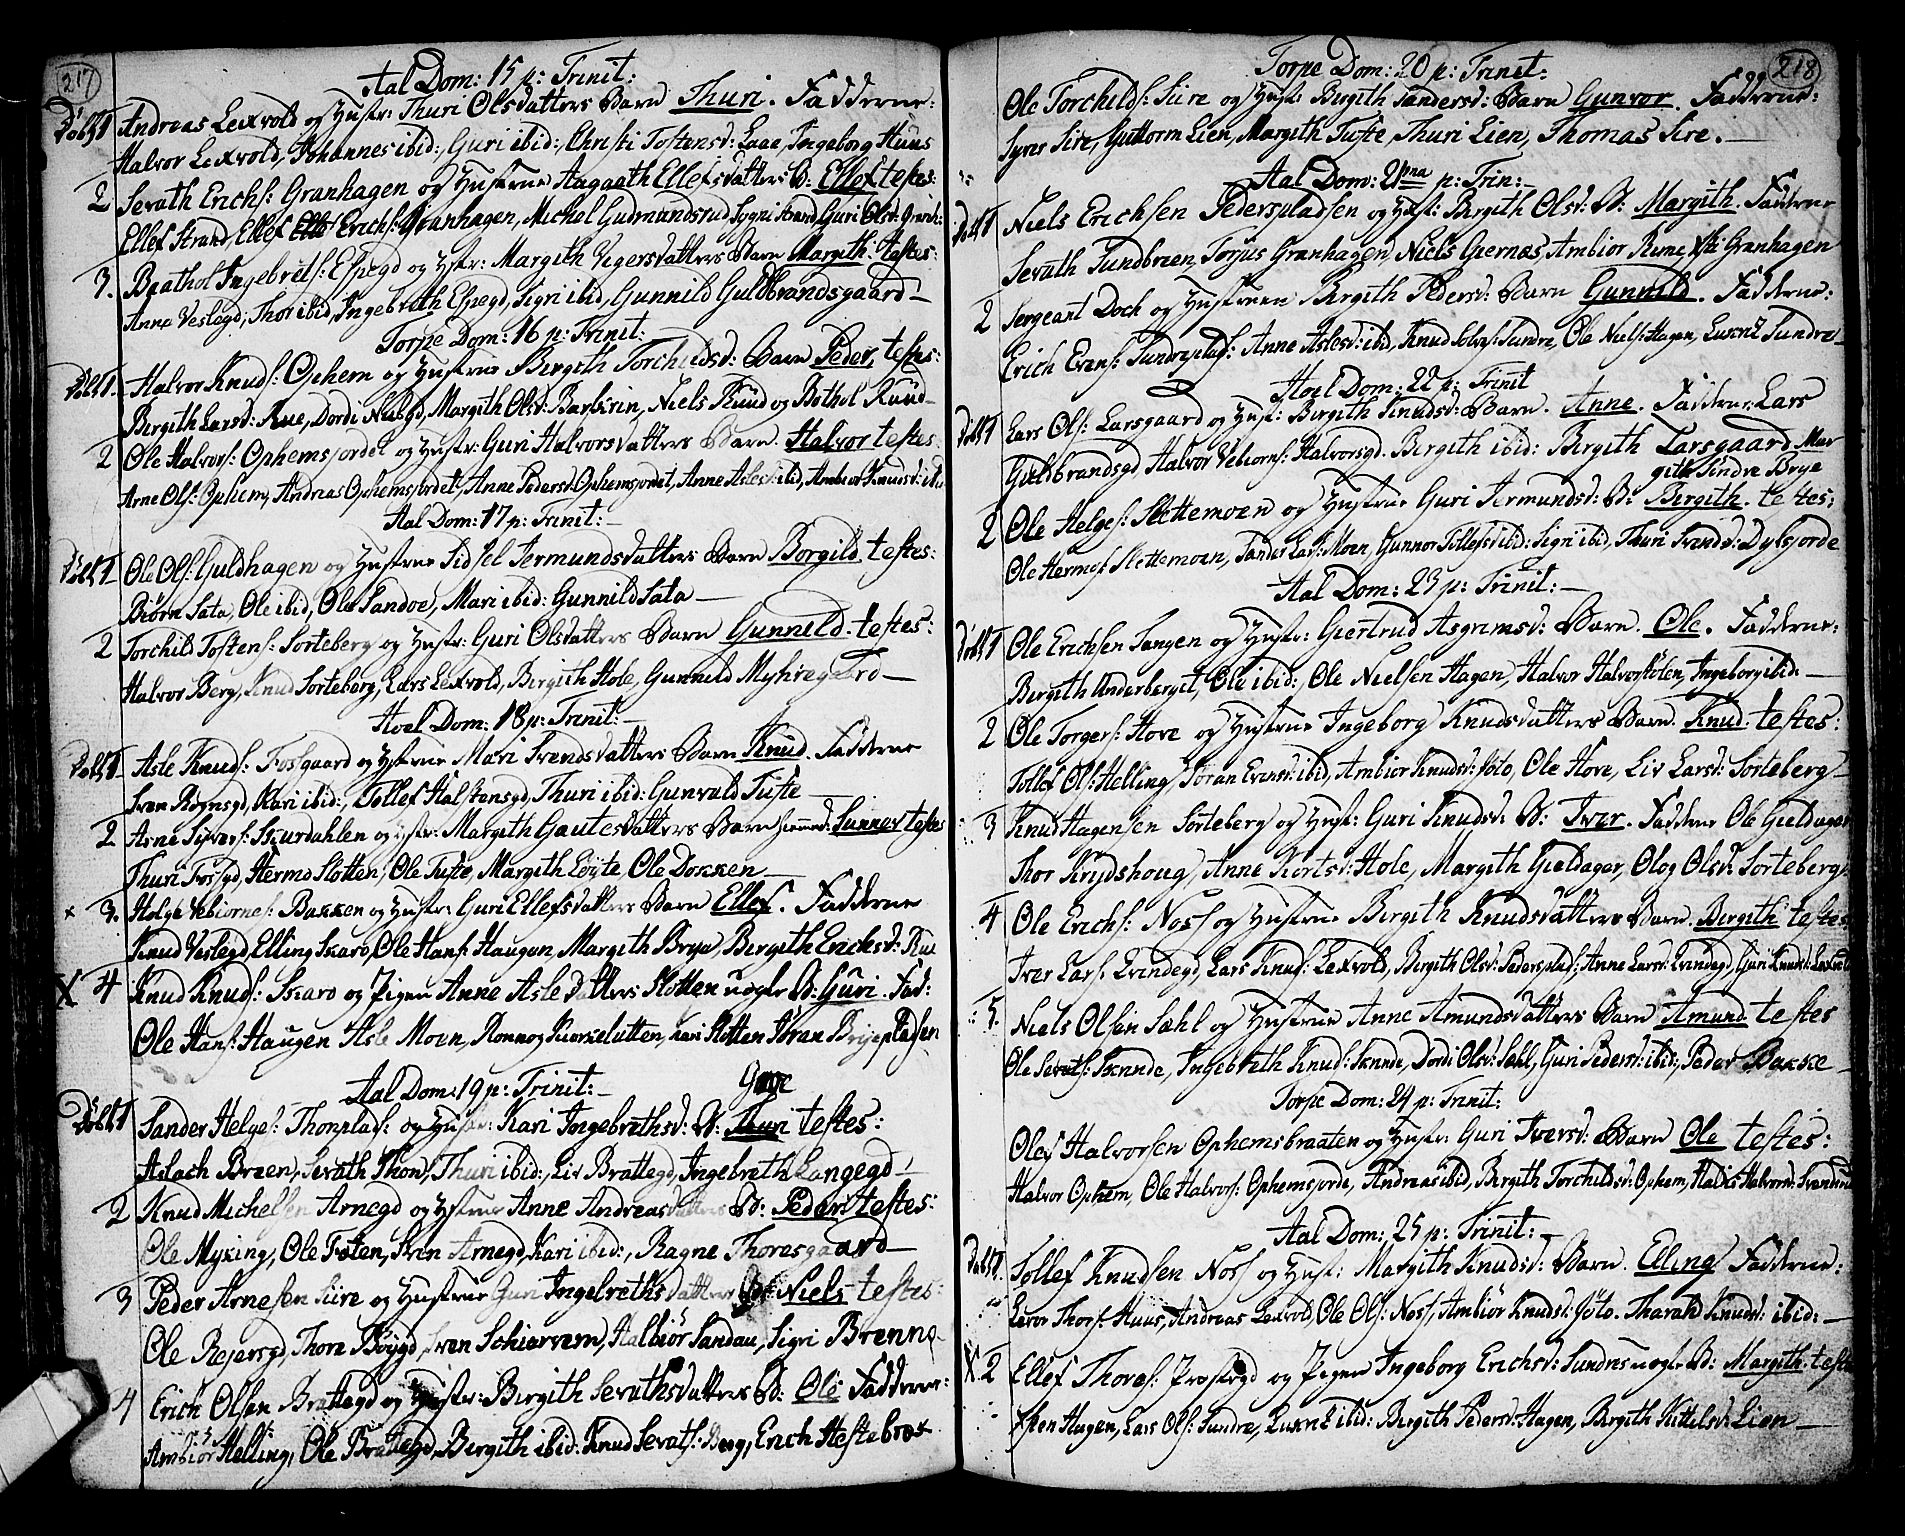 217
Aal Dom: 15 p: Trinit:
Døbt 1 Andreas Lexvold og Hustr: Thuri Olsdatters Barn Thuri. Fadderne:
Halvor Lexvold, Johannes ibid:, Guri ibid:, Christi Tostensd: Laae, Ingeborg Huus
2 Sevath Erichs: Granhagen og Hustrue Aagaath Ellefsdatters B: Ellef testes:
Ellef Strand, Ellef Erichs: Granhagen, Michel Gudmundsrud, Sygni Strand, Guri Olsd: Granh:
3. Baathol Ingebrets: Espegd og Hustr: Margith Vegersdatters Barn Margith. testes:
Anne Veslegd, Thor ibid, Ingebreth Espegd, Sigri ibid, Gunnild Guldbrandsgaard
Torpe Dom: 16 p: Trinit:
Døbt 1. Halvor Knuds: Ophem og Hustrue Bergith Torchildsd: Barn Peder, testes:
Bergith Larsd: Rue, Dordi Nubgd, Margith Olsd: Barskrin, Niels Ruud og Bothol Ruud
2 Ole Halvors: Ophemsjordet og Hustr: Guri Halvorsdatters Barn. Halvor testes
Arne Ols: Ophem, Andreas Ophemsjordet, Anne Pedersd: Ophemsjordet, Anne Aslesd: ibid, Ambior Knudsd: ibid
Aal Dom: 17 p: Trinit:
Døbt 1 Ole Ols: Guldhagen og Hustrue Sidsel Jermundsdatters Barn Borgild testes:
Biørn Sata, Ole ibid, Ole Sandoe, Mari ibid: Gunnild Sata
2 Torchild Tostens: Sorteberg og Hustr: Guri Olsdatters Barn Gunneld. testes:
Halvor Berg, Knud Sorteberg, Lars Lexvold, Bergith Hole, Gunneld Myhregaard
Hoel Dom: 18 p: Trinit:
Døbt 1. Asle Knuds: Fosgaard og Hustrue Mari Svendsdatters Barn Knud. Fadderne
Sven Rognsgd, Kari ibid:, Tollef Halstensgd, Thuri ibid: Gunvald Tufte
2 Arne Syvers: Skurdahlen og Hustr: Margith Gautesdatters Barn Gunner testes
Thuri Fosgd, Hermo Slotten, Ole Tufte, Margith Løyte, Ole Dokken
3. Helge Vebiørnes: Bakken og Hustr: Guri Ellefsdatters Barn Ellef. Fadderne
Knud Veslegd, Elling Skaro, Ole Hans: Haugen, Margith Brye, Bergith Erichsd: Rue
X 4 Knud Knuds: Skaro og Pigen Anne Asledatters Slotten uægte B: Guri. Fad:
Ole Hans: Haugen Asle Moen, Ronnog Kuorselutten, Kari Slotten Jøran Bryepladsen
Aal Dom: 19 p: Trinit:
Døbt 1 Sander Helges: Thonplads: og Hustr: Kari Ingebrethsd: B: Thuri testes:
Aslach Breen, Sevath Thon, Thuri ibid:, Liv Brattegd, Ingebreth Langegd
2 Knud Michelsen Arnegd og Hustrue Anne Andreasdatters B: Peder testes:
Ole Myking, Ole Foten, Sven Arnegd, Kari ibid:, Ragne Thoresgaard
3 Peder Arnesen Sire og Hustrue Guri Ingebrethsdatters B: Niels testes:
Ole Rejersgd, Thore Bøygd, Sven Schiervem, Halbiør Sandau, Sigri Brenno
4 Erich Olsen Brattegd og Hustr: Bergith Sevathsdatters B: Ole Fadderne:
Ambiør Helling, Ole Brattegd, Bergith ibid: Knud Sevats: Berg, Erich Hestebroe
218
Torpe Dom: 20 p: Trinit:
Ole Torchilds: Siire og Hustr: Bergith Sandersd: Barn Gunvor. Fadderne:
Syver Sire, Guttorm Lien, Margith Tufte, Thuri Lien, Thomas Sire.
Aal Dom: 21ma p: Trin:
Døbt 1 Niels Erichsen Pederspladsen og Hustr: Bergith Olsd: B: Margith. Fadderne
Sevath Sundbreen, Torjus Granhagen, Niels Giernas, Ambior Rime, Granhagen
2 Sergeant Doch og Hustruen Bergith Pedersd: Barn Gunneld. Fadderne:
Erich Evens: Sundreplads: Anne Aslesd: ibid, Knud Solvfs: Sundre, Ole Niels: Hagen, Sundre
Hoel Dom: 22 p: Trinit
Døbt 1 Lars Ols: Larsgaard og Hust: Bergith Knudsd: Barn. Anne. Fadderne: Lars
Guldbrandsgd Halvor Vebiorns: Halvorsgd. Bergith ibid: Bergith Larsgaard Mar
gith Sindre Brye
2 Ole Helges: Slettemoen og Hustrue Guri Jermundsd: B: Bergith. testes:
Ole Hermos: Slettemoen, Sander Lars: Moen, Gunnor Tollefsd ibid: Sigri ibid, Thuri Trudsd: Dylsjorde
Aal Dom: 23 p: Trinit:
Døbt 1 Ole Erichsen Sangen og Hustr: Giertrud Asgrimsd: Barn. Ole. Fadderne:
Bergith Underberget, Ole ibid:, Ole Nielsen Hagen, Halvor Halvorsløten, Ingeborg ibid:
2 Ole Torgers: Hove og Hustrue Ingeborg Knudsdatters Barn. Knud. testes:
Tollef Ols: Helling, Jøran Evensd: ibid, Ambior Knudsd: Joto, Ole Hove, Liv Larsd: Sorteberg
3 Knud Hagensen Sorteberg og Hust: Guri Knudsd: B: Iver. Fadderne Ole Gieldager
Thor Krydshoug, Anne Kortsd: Hole, Margith Gieldager, Olog Olsd: Sorteberg
4 Ole Erichs: Noss og Hustrue Bergith Knudsdatters Barn. Bergith testes
Iver Lars: Qvindegd, Lars Knuds: Lexvold, Bergith Olsd: Pedersplads:, Anne Larsd: Qvindegd, Guri Knudsd: Lexvold
5. Niels Olsen Sæhl og Hustrue Anne Amundsdatters Barn Amund testes
Ole Sevats: Skrinde, Ingebreth Knuds: Skrinde, Dordi Olsd: Sæhl, Guri Pedersd: ibid:, Peder Bakke
Torpe Dom: 24 p: Trinit:
Olef Halvorsen Ophemsbraaten og Hustr: Guri Iversd: Barn Ole testes:
Halvor Ophem, Ole Halvors: Ophemsjorde, Andreas ibid, Bergith Torchildsd: Ophem, Haldis Halvorsd:
Aal Dom: 25 p: Trinit:
Døbt 1. Tollef Knudsen Noss og Hust: Margith Knudsd: Barn. Elling Fadderne:
Levor Thors: Huus, Andreas Lexvold, Ole Ols: Noss, Ambiør Knudsd: Joto. Tharald Knuds: ibid:
X 2 Ellef Thores: Prestegd og Pigen Ingeborg Erichsd: Sundre uægte B: Margith. testes
Hagen, Lars Ols: Sundre, ibid: Bergith Pedersd: Hagen, Bergith Kittelsd: Lien